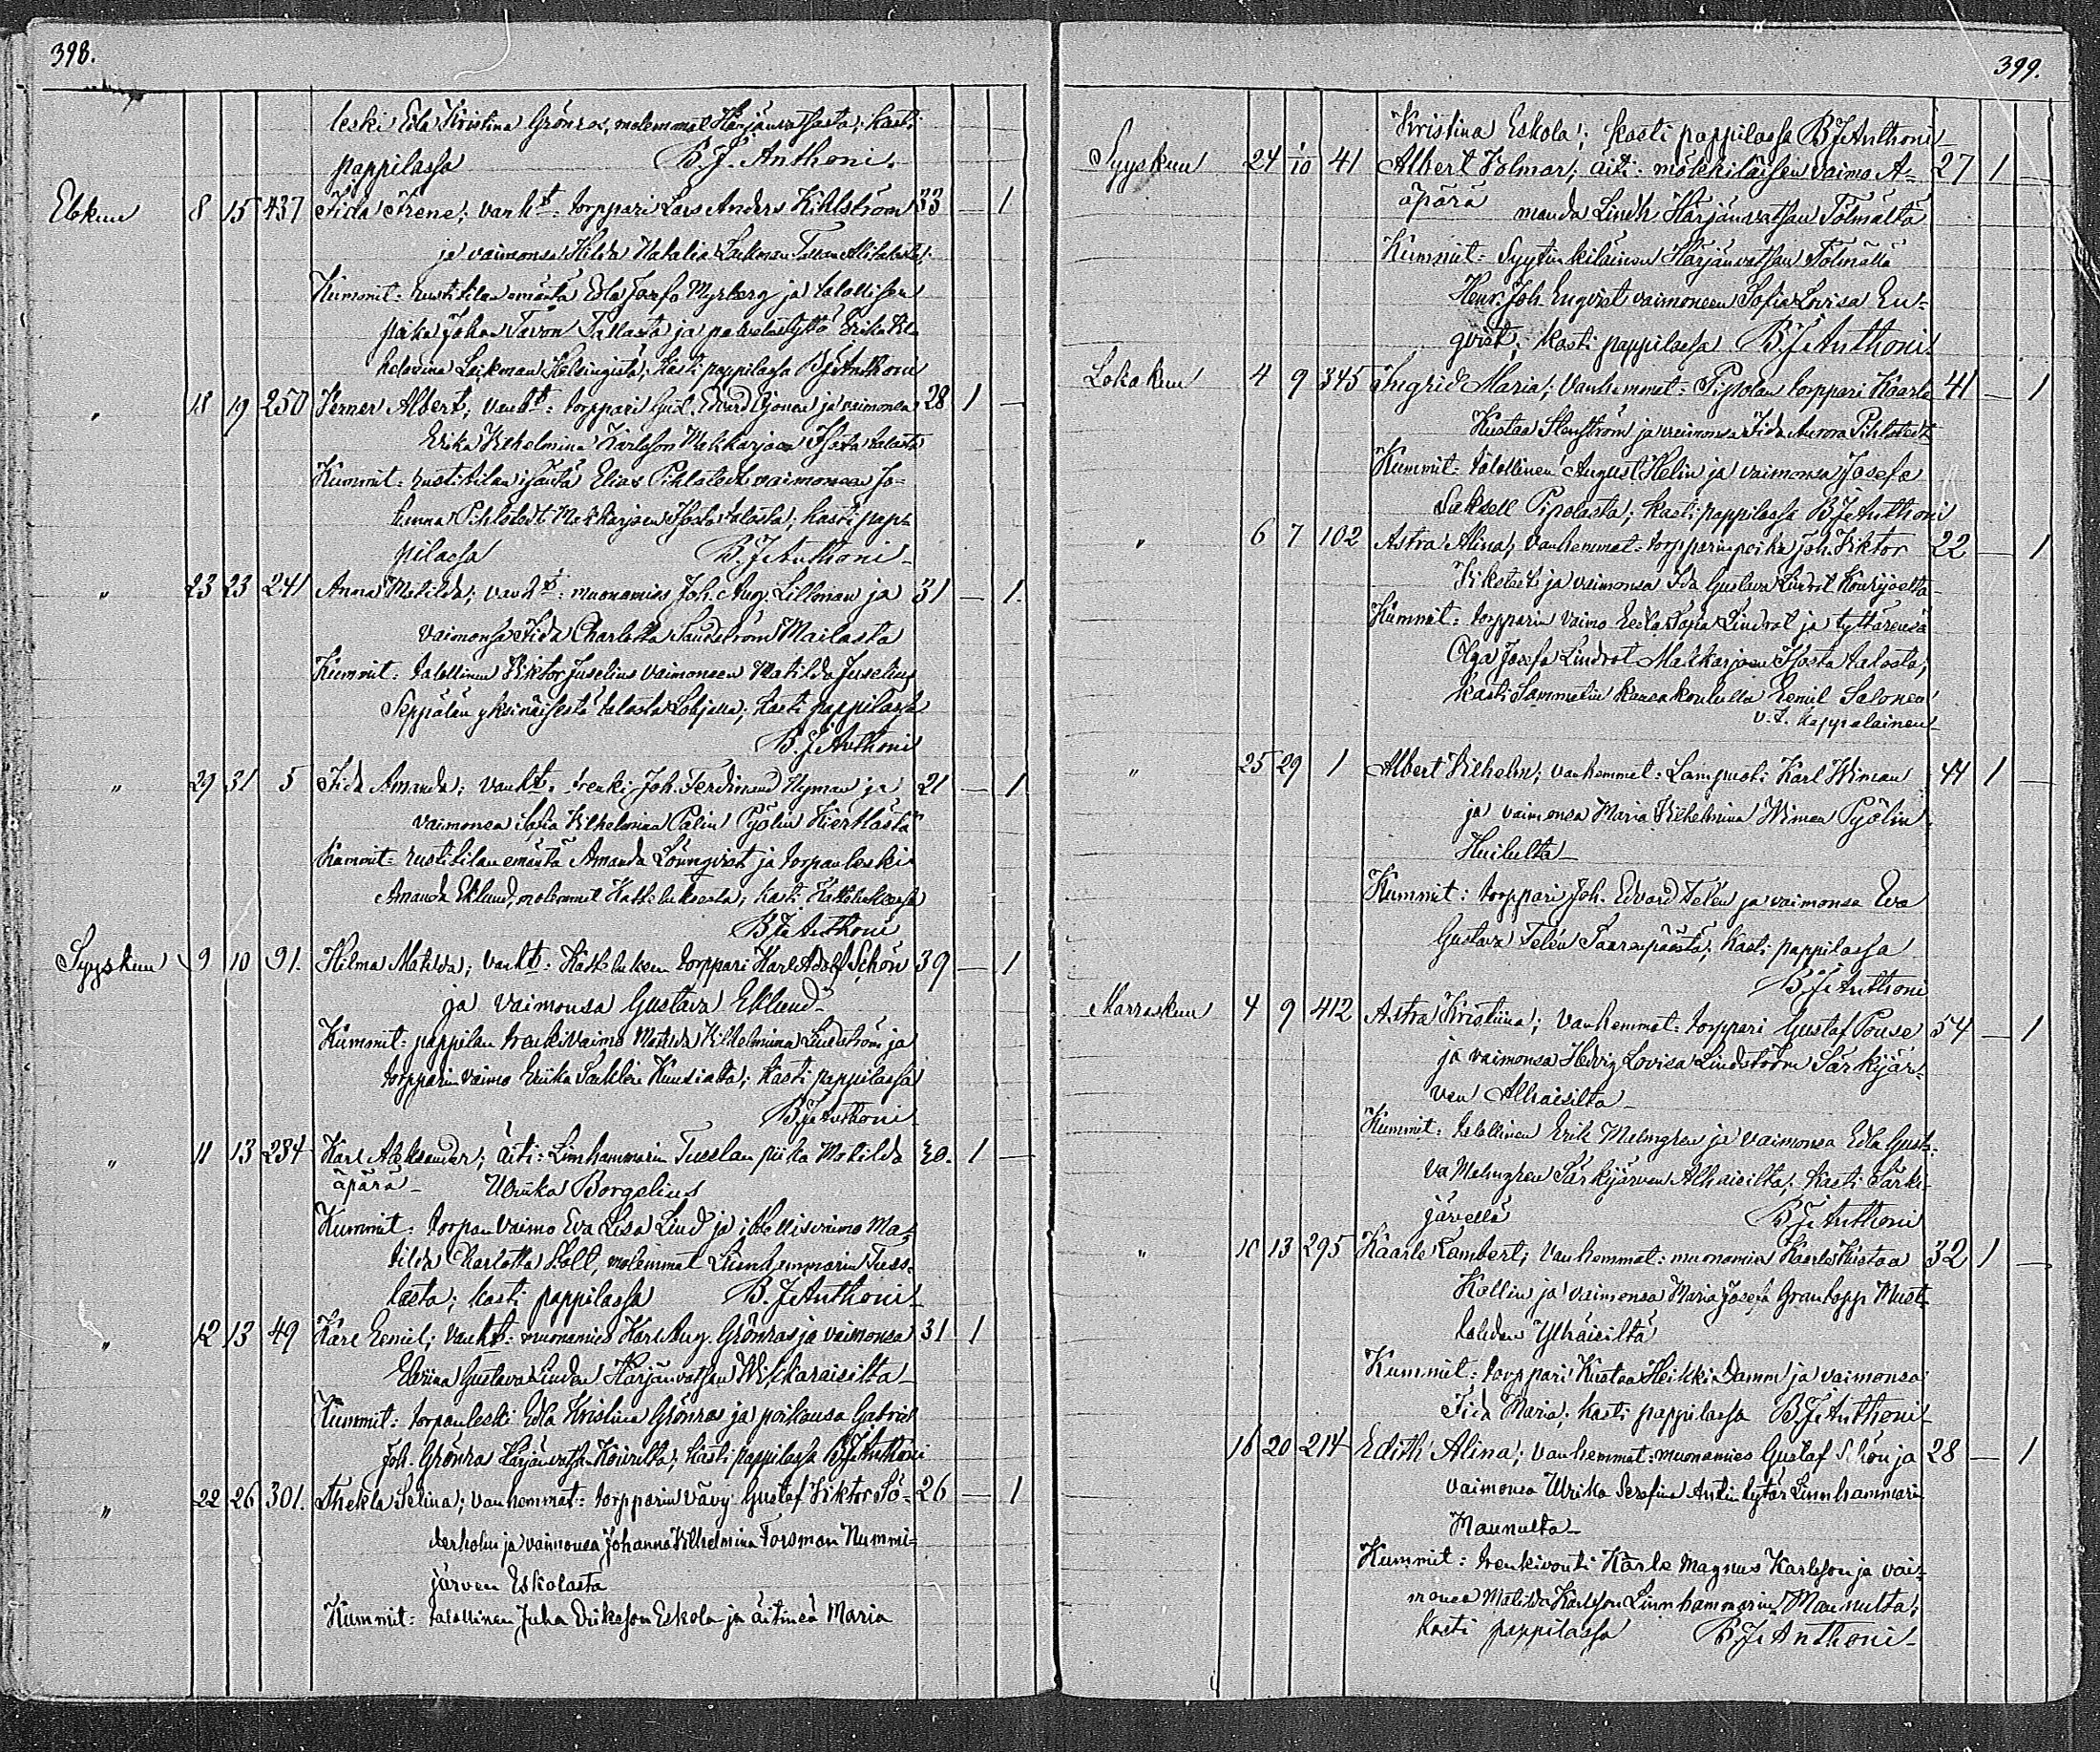 398.
leski Edla Kristina Grönros, molemmat Härjänvatsasta; kasti
pappilassa B. J. Anthoni.
Elokuu 8 15 437 Iida Irene; vanht: torppari Lars Anders Kihlström 33 — 1
ja vaimonsa Hilda Natalia Lackman
Kummit: rustitilan emäntä Edla Josefa Myrberg ja talollisen
poika Johan Tallasta ja palvelustyttö Erika Wil-
helmina Lackman Helsingistä; kasti pappilassa B J Anthoni
" 18 19 250 Verner Albert; vanht: torppari Edvard ja vaimonsa 28 1 —
Erika Vilhelmina Karlsson talosta
Kummit: rustitilan isäntä Elias Pihlstedt vaimoneen Jo-
hanna Pihlstedt talosta; kasti pap-
pilassa B J Anthoni
" 23 23 241 Anna Matilda; vanht: muonamies Joh. Aug. Lillman ja 31 — 1.
vaimonsa Iida Charlotta Sandström Mailasta
Kummit: talollinen Viktor Juselius vaimoneen Matilda Juselius
Seppälän yksinäisestä talosta Lohjalla; kasti pappilassa
B. J Anthoni
" 29 31 5 Iida Amanda; vanht. renki Joh. Ferdinand Nyman ja 21 — 1
vaimonsa Sofia Vilhelmina Palin Pyölin
Kummit: rustitilan emäntä Amanda Lönnqvist ja torpanleski
Amanda Eklund, molemmat; kasti
B J Anthoni
Syyskuu 9 10 91. Hilma Matilda; vanht: torppari Karl Adolf Schön 39 — 1
ja vaimonsa Gustava Eklund
Kummit: pappilan renkivaimo Matilda Vilhelmina Lindström ja
torpparin vaimo Kuusialta; kasti pappilassa
B J Anthoni
" 11 13 284 Karl Aleksander; äiti: Linhammarin Tusslan piika Matilda 30. 1 —
äpärä Ulriika Borgelius
Kummit: torpan vaimo Eva Lisa Lind ja itsellisvaimo Ma-
tilda Charlotta Stolt, molemmat Linhammarin Tuss-
lasta; kasti pappilassa B. J Anthoni
" 12 13 49 Karl Eemil; vanht: muonamies Karl Aug. Grönros ja vaimonsa 31 1
Gustava Linden Härjänvatsan
Kummit: torpanleski Edla Kristina Grönros ja poikansa Gabriel
Joh. Grönros Härjänvatsan; kasti pappilassa B J Anthoni
" 22 26 301. Thekla Selina; vanhemmat: torpparin vävy Gustaf Viktor Sö- 26 — 1
derholm ja vaimonsa Johanna Vilhelmina Forsman Nummi-
järven Eskolasta
Kummit: talollinen Juha Eriksson Eskola ja äitinsä Maria
399.
Kristina Eskola; kasti pappilassa B J Anthoni
Syyskuu 24 1/10 41 Albert Volmar; äiti: mökkiläisen vaimo A- 27 1 —
äpärä manda Lindh Härjänvatsan Tölmältä
Kummit: Syytinkiläinen Härjänvatsan Tölmällä
Henr. Joh. Enqvist vaimoneen Sofia Lovisa En-
qvist; kasti pappilassa B J Anthoni
Lokakuu 4 9 345 Ingrid Maria; Vanhemmat: Pipolan torppari Kaarle 41 — 1
Kustaa Stenström ja vaimonsa Iida Aurora Pihlstedt
Kummit: talollinen August Helin ja vaimonsa Josefa
Saksell Pipolasta; kasti pappilassa B J Anthoni
" 6 7 102 Astra Alina; Vanhemmat: torpparinpoika Joh. Viktor 22 — 1
ja vaimonsa Ida Gustava Lindrot
Kummit: torpparin vaimo Eedla Sofia Lindrot ja tyttärensä
Olga Josefa Lindrot talosta,
kasti Sammatin kansakoululla Eemil Salonen
v. t. kappalainen
" 25 29 1 Albert Vilhelm; vanhemmat: Lampuoti Karl Wiman 44 1 —
ja vaimonsa Maria Vilhelmina Wiman Pyölin
Huhulta
Kummit: torppari Joh. Edvard Telén ja vaimonsa Eva
Gustava Telén Saarenpäästä; kasti pappilassa
B J Anthoni
Marraskuu 4 9 412 Astra Kristiina; Vanhemmat: torppari Gustaf Pouse 34 — 1
ja vaimonsa Hedvig Lovisa Lindström Särkijär-
ven Alhaisilta
Kummit: talollinen Erik Malmgren ja vaimonsa Edla Gusta-
va Malmgren Särkijärven Alhaisilta; kasti Särki-
järvellä B J Anthoni
" 10 13 295 Kaarle Lambert; Vanhemmat: muonamies Kaarle Kustaa 32 1 —
Kollin ja vaimonsa Maria Josefa Grantopp Must-
lahden Ylhäisiltä
Kummit: torppari Kustaa Heikki Damm ja vaimonsa
Iida Maria; kasti pappilassa B. J Anthoni
16 20 214 Edith Alina; vanhemmat: muonamies Gustaf Schön ja 28 — 1
vaimonsa Ulrika Serafina Antintytär Linnhammarin
Maunulta
Kummit: renkivouti Karle Magnus Karlsson ja vai-
monsa Matilda Karlsson Linnhammarin Maunulta;
kasti pappilassa B. J Anthoni